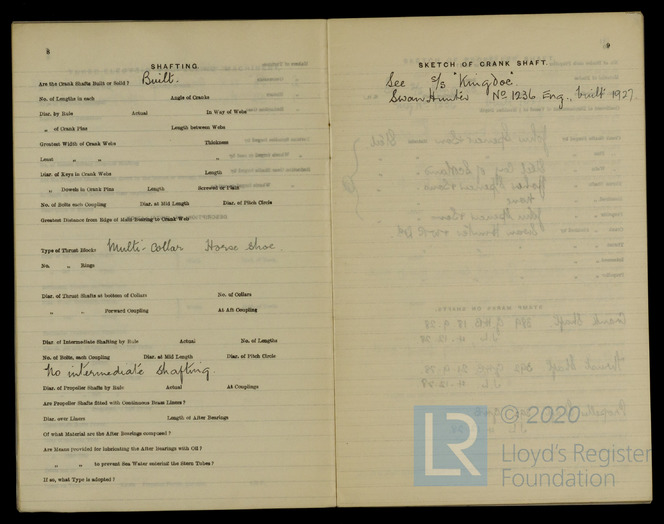 8
SHAFTING.
Are the Crank Shafts Built or Solid? Built.
No. of Lengths in each Angle of Cranks
Diar. by Rule Actual In Way of Webs
„ of Crank Pins Length between Webs
Greatest Width of Crank Webs Thickness
Least „ „ „
Diar. of Keys in Crank Webs Length
„ Dowels in Crank Pins Length Screwed or Plain
No. of Bolts each Coupling Diar. at Mid Length Diar. of Pitch Circle
Greatest Distance from Edge of Main Bearing to Crank Web
Type of Thrust Blocks Multi-Collar Horse Shoe
No. „ Rings
Diar. of Thrust Shafts at bottom of Collars No. of Collars
„ „ Forward Coupling At Aft Coupling
Diar. of Intermediate Shafting by Rule Actual No. of Lengths
No. of Bolts, each Coupling Diar. at Mid Length Diar. of Pitch Circle
No intermediate shafting.
Diar. of Propeller Shafts by Rule Actual At Couplings
Are Propeller Shafts fitted with Continuous Brass Liners?
Diar. over Liners Length of After Bearings
Of what Material are the After Bearings composed?
Are Means provided for lubricating the After Bearings with Oil?
„ „ to prevent Sea Water entering the Stern Tubes?
If so, what Type is adopted?
9
SKETCH OF CRANK SHAFT.
See S/S "Kingdoc"
Swan Hunter No 1236 Eng., built 1927.
LR
© 2020
Lloyd's Register
Foundation